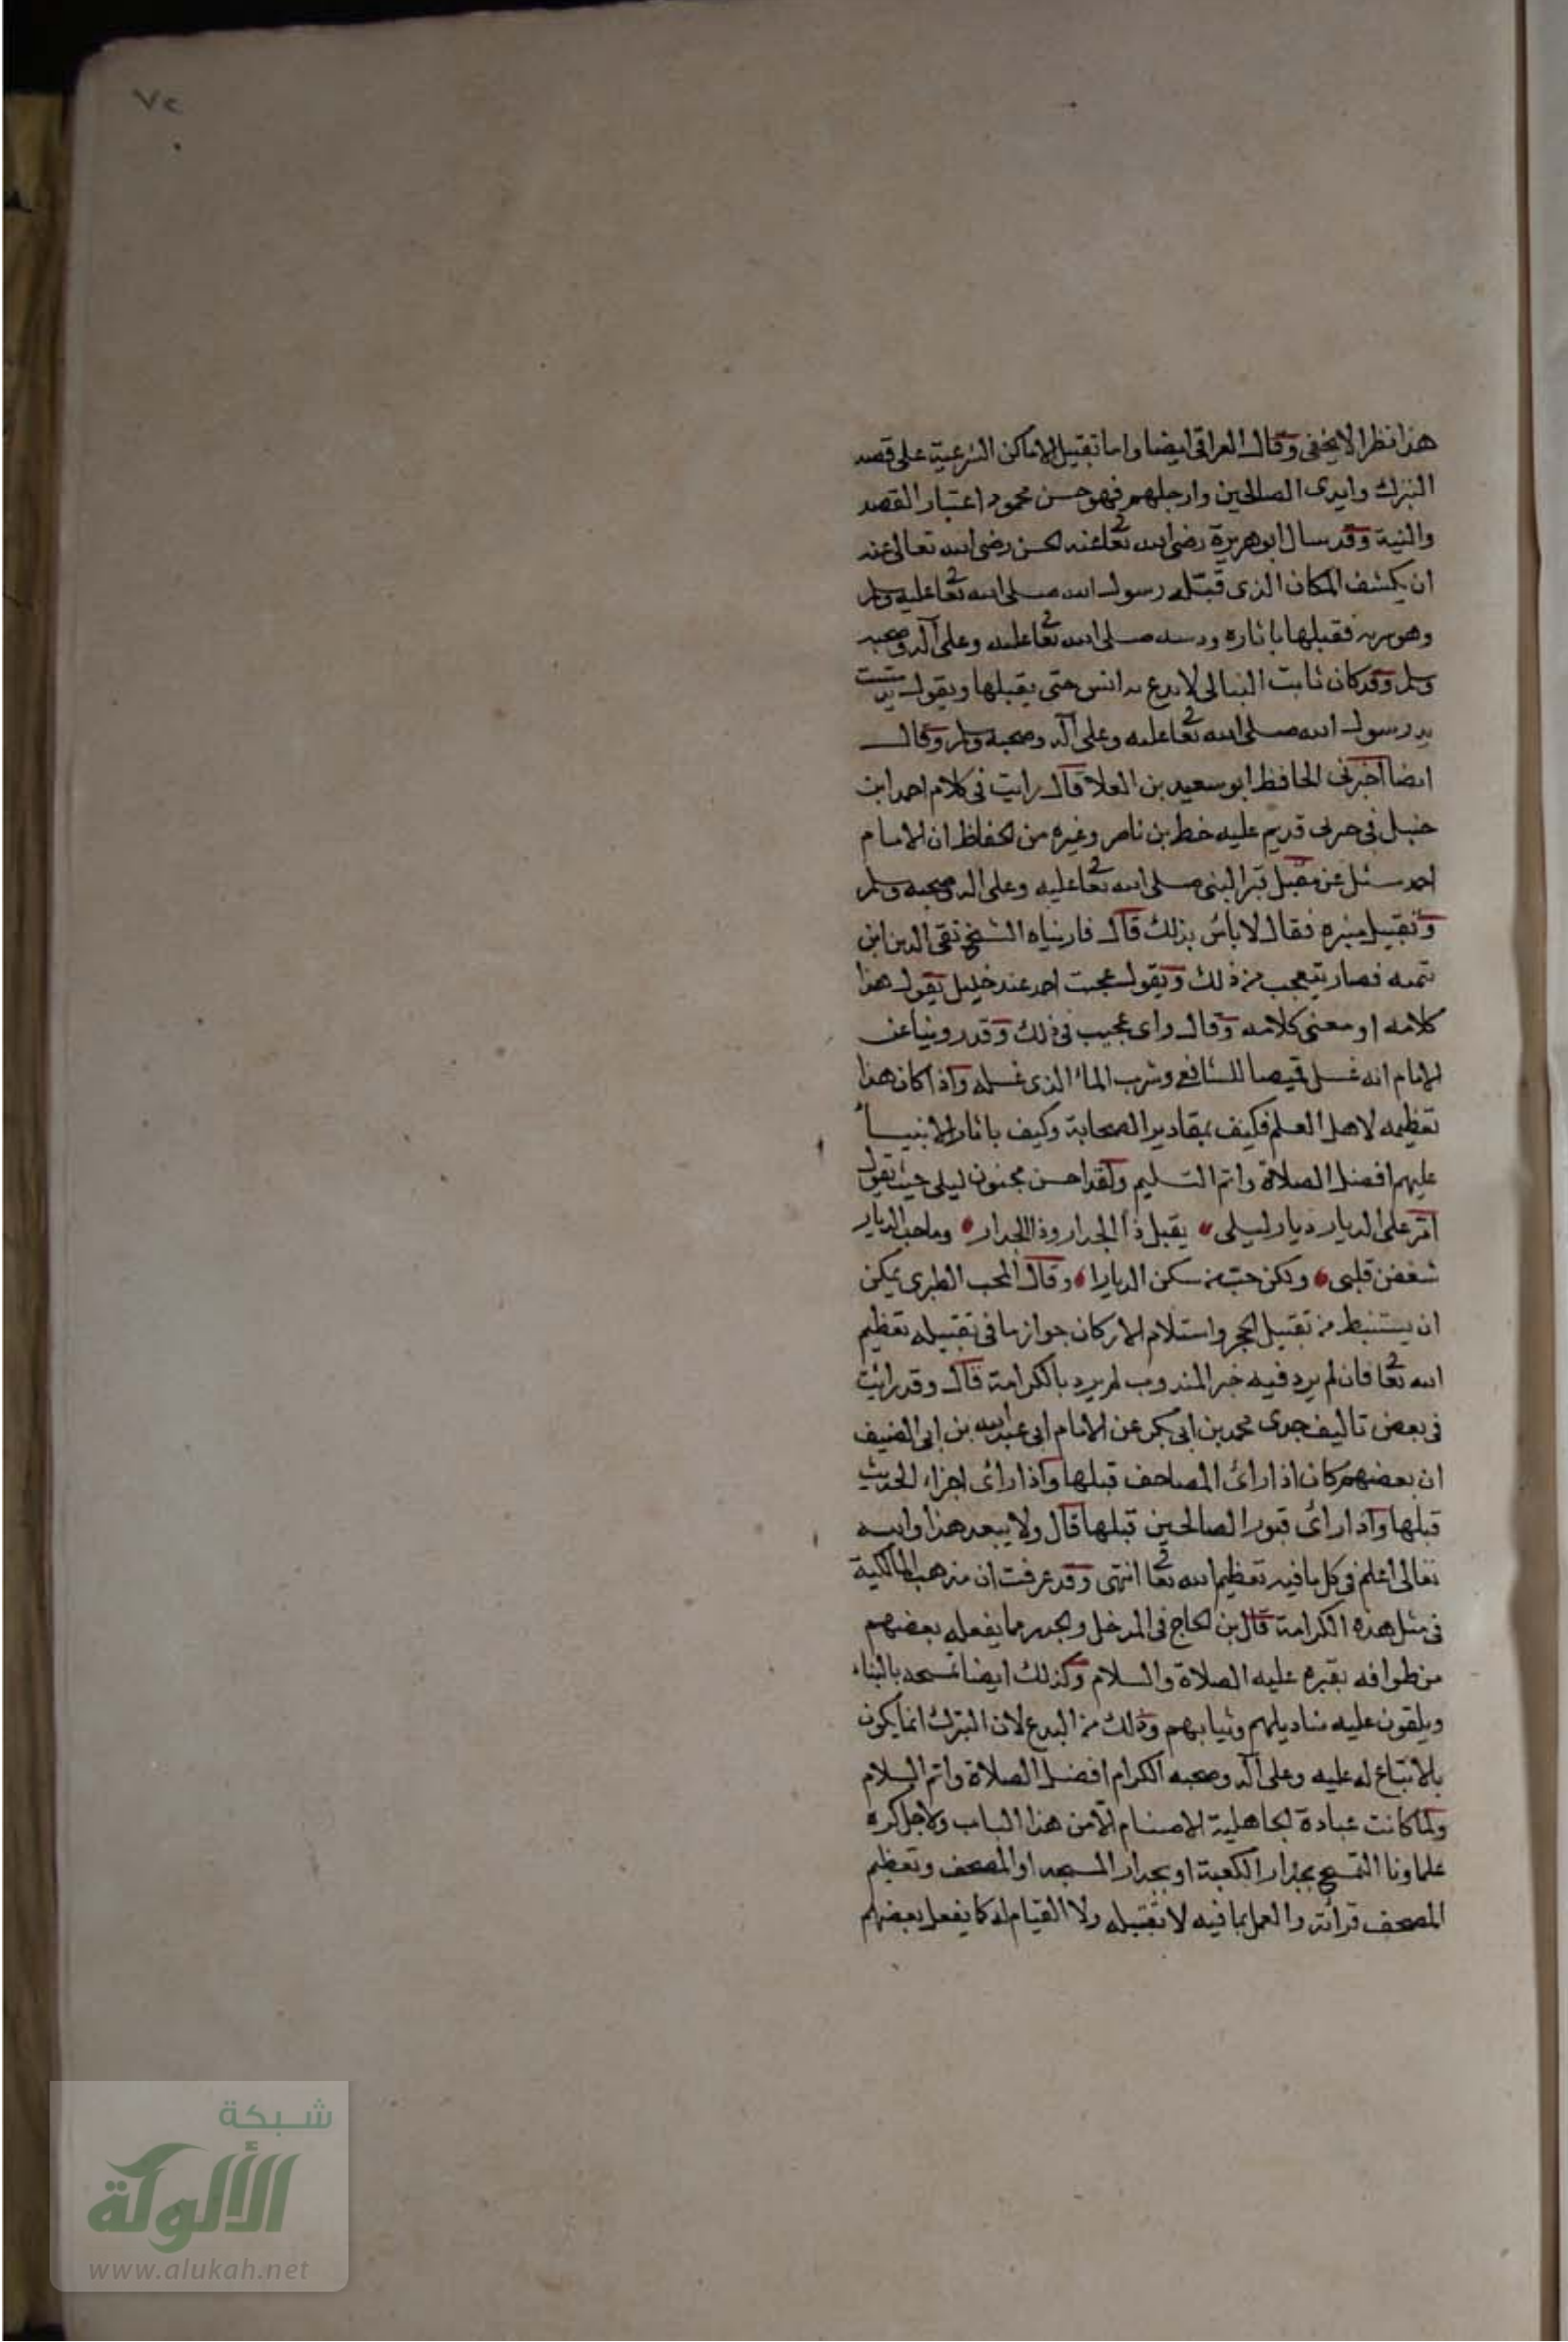 ٧٢
هذا نظرا لا يخفى وقال العراقى ايضا واما تقبيل الاماكن الشرعية على قصد
التبرك وايدى الصالحين وارجلهم فهو حسن محمود اعتبار القصد
والنية وقد سال ابو هريرة رضى الله تعا عنه الحسن رضى الله تعالى عنه
ان يكشف المكان الذى قبله رسول الله صلى الله تعا عليه وسلم
وهو سرته فقبلها باثاره صلى الله تعا عليه وعلى آله وصحبه
وسلم وقد كان ثابت البنانى لا يدع يد انس حتى يقبلها ويقول يد مست
يد رسول الله صلى الله تعا عليه وعلى آله وصحبه وسلم وقال
ايضا اخبرنى الحافظ ابو سعيد بن العلا قال رايت فى كلام احمد ابن
حنبل فى جزء قديم عليه خط بن ناصر وغيره من الحفاظ ان الامام
احمد سئل عن تقبل قبر النبى صلى الله تعا عليه وعلى اله وصحبه وسلم
وتقبيل منبره فقال لا باس بذلك قال فاريناه الشيخ تقى الدين ابن
تيميه فصار يتعجب من ذلك ويقول عجبت احمد عند خليل يقول هذا
كلامه او معنى كلامه وقال واى عجيب فى ذلك وقد روينا عن
الامام انه غسل قميصا للشافعى وشرب الماء الذى غسله واذا كان هذا
تعظيمه لاهل العلم فكيف بمقادير الصحابة وكيف باثار الانبيا
عليهم افضل الصلاة واتم التسليم ولقد احسن مجنون ليلى حيث يقول
امر على الديار ديار ليلى يقبل ذا الجدار وذا الجدار وما حب الديار
شغفن قلبى ولكن حب من سكن الديارا وقال المحب الطبرى يمكن
ان يستنبط من تقبيل الحجر واستلام الاركان جواز ما فى تقبيله تعظيم
الله تعا فان لم يرد فيه خبر المندوب لم يرد بالكرامة قال وقد رايت
فى بعض تاليف جدى محمد بن ابى بكر عن الامام ابى عبد الله بن ابى الضيف
ان بعضهم كان اذا رائ المصاحف قبلها واذا رائ اجزاء الحديث
قبلها واذا رائ قبور الصالحين قبلها قال ولا يبعد هذا والله
تعالى اعلم فى كل ما فيه تعظيم الله تعا انتهى وقد عرفت ان مذهب المالكية
فى مثل هذه الكرامة قال بن الحاج فى المدخل وليحذر مما يفعله بعضهم
من طوافه بقبره عليه الصلاة والسلام وكذلك ايضا تمسحه بالبناء
ويلقون عليه مناديلهم وثيابهم وذلك من البدع لان التبرك انما يكون
بالاتباع له عليه وعلى آله وصحبه الكرام افضل الصلاة واتم السلام
ولما كانت عبادة الجاهلية الاصنام الا من هذا الباب ولاجل كره
علماونا التمسح بجدار الكعبة او بجدار المسجد او المصحف وتعظيم
المصحف قرأته والعمل بما فيه لا تقبيله ولا القيام له كما يفعل بعضهم
شبكة
الألوكة
www.alukah.net